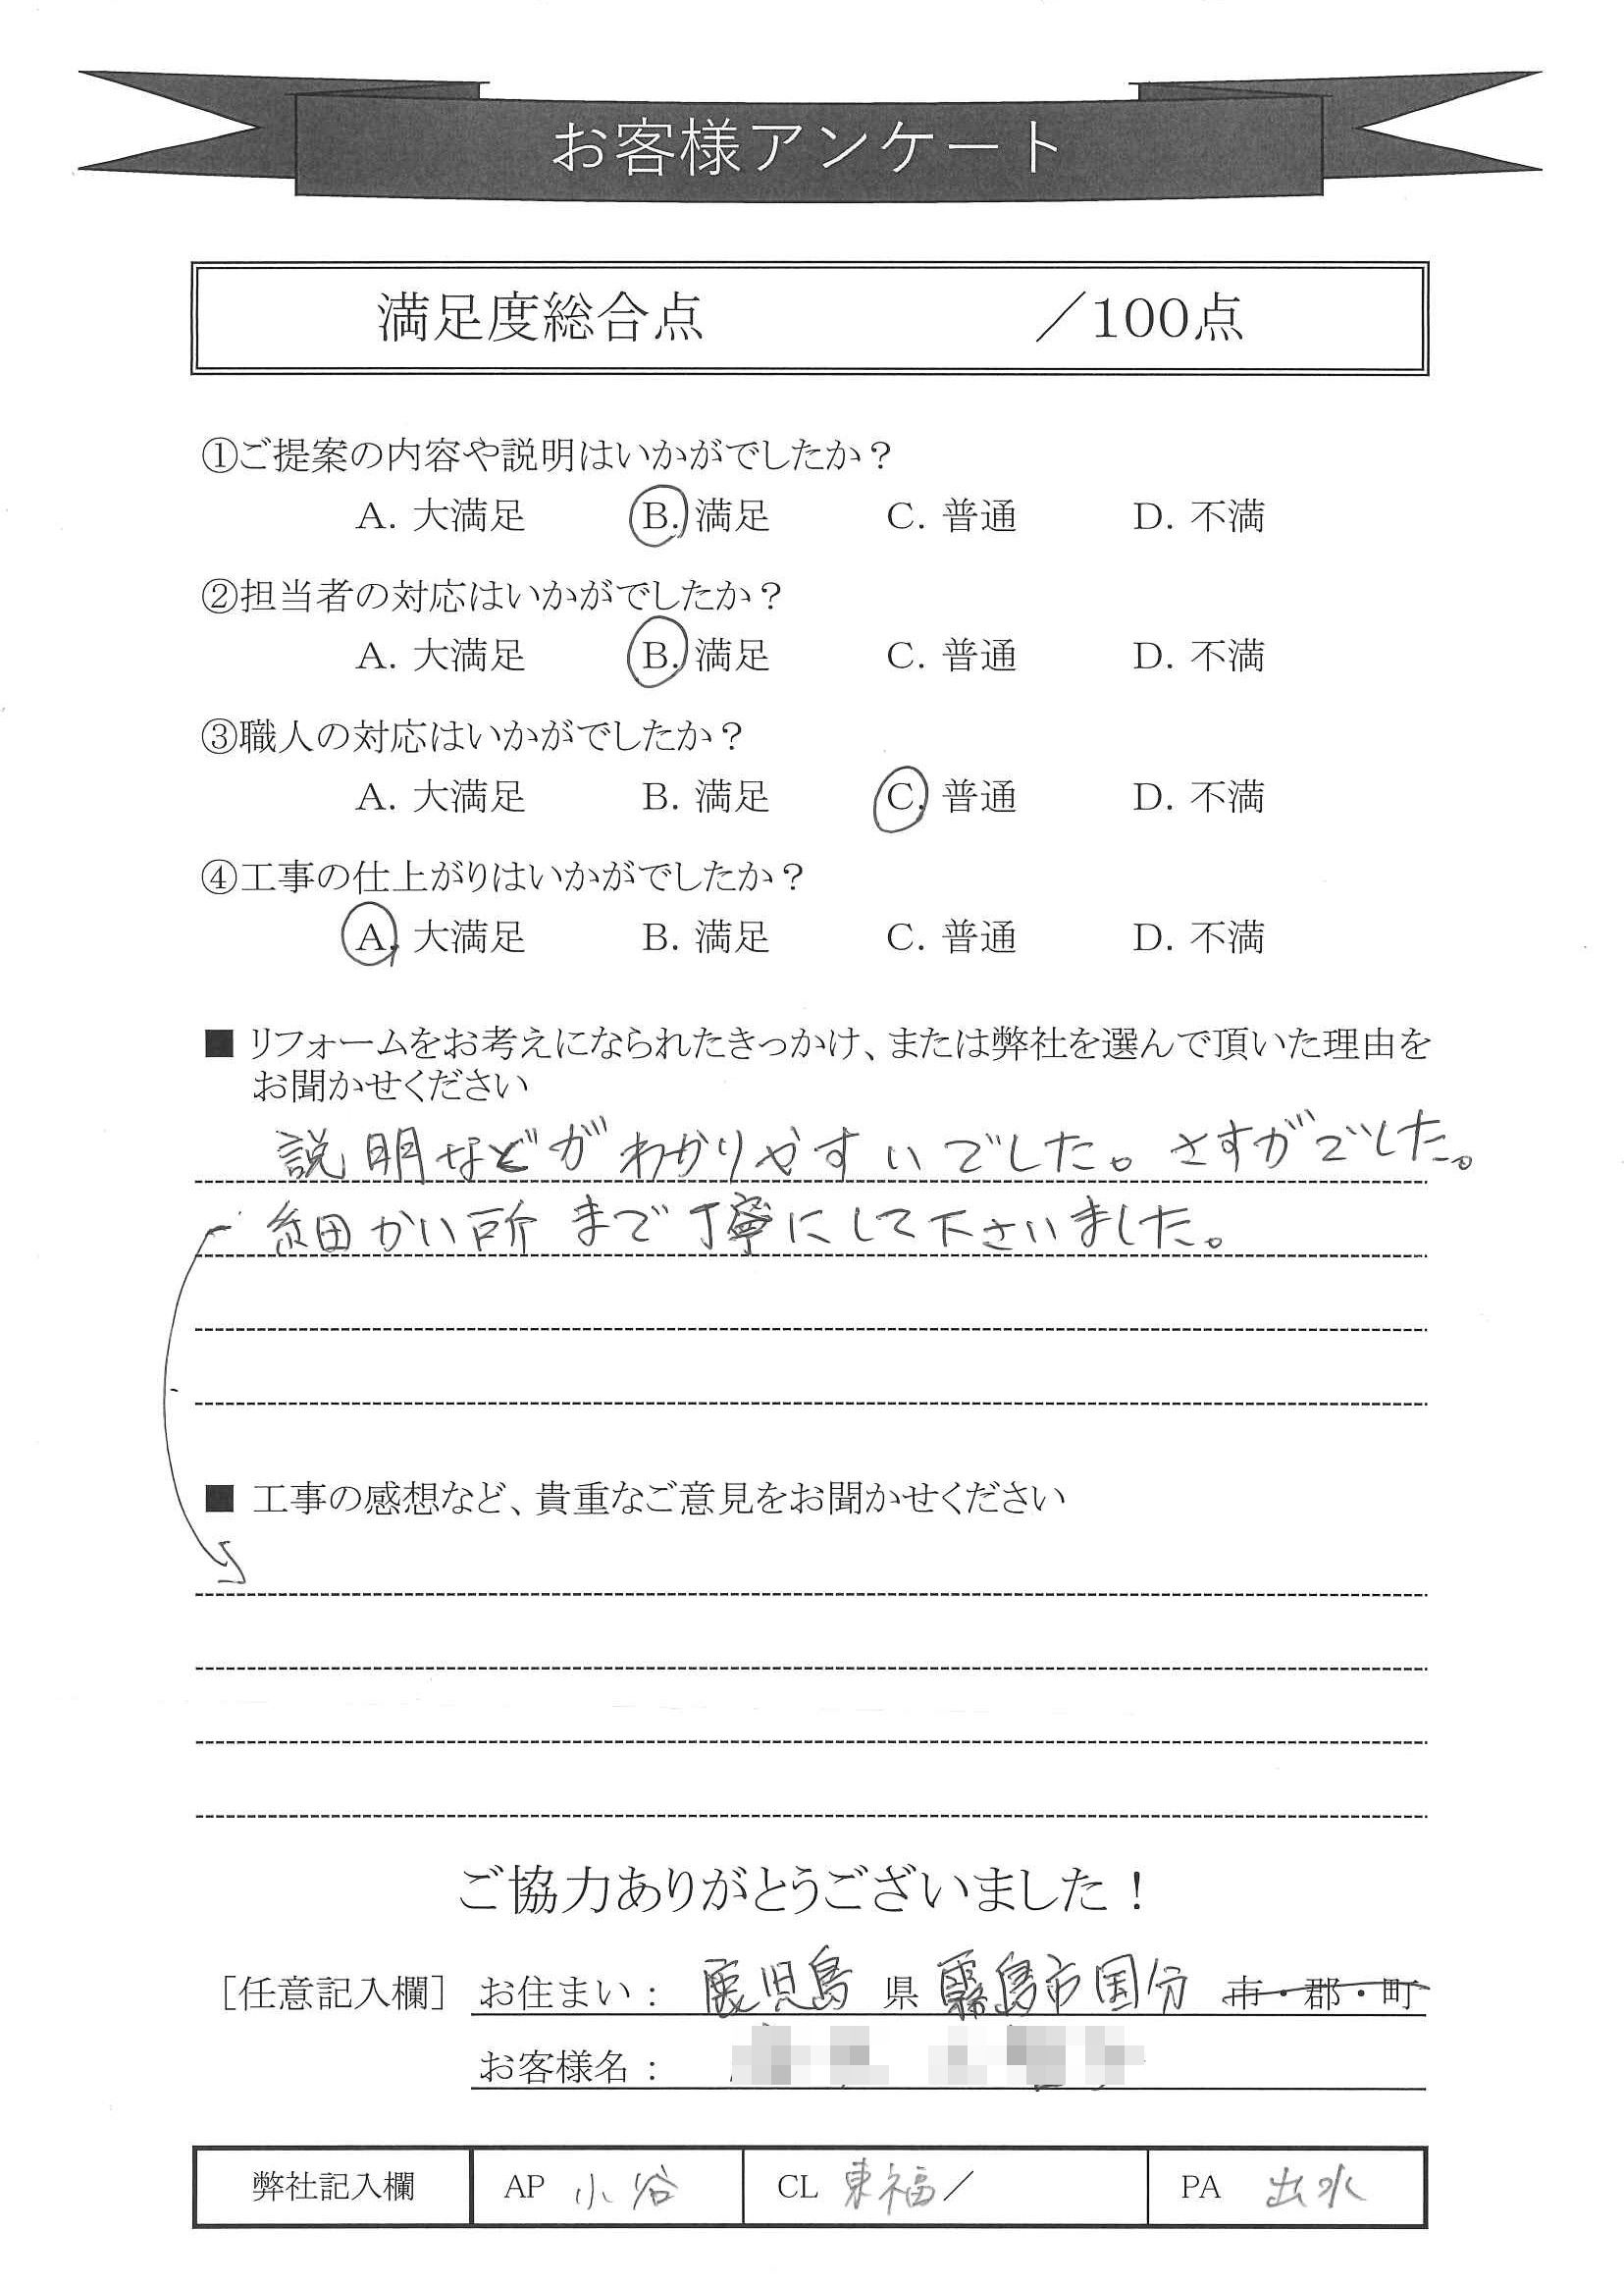 お客様アンケート
満足度総合点 ／100点
①ご提案の内容や説明はいかがでしたか？
A. 大満足 B. 満足 C. 普通 D. 不満
②担当者の対応はいかがでしたか？
A. 大満足 B. 満足 C. 普通 D. 不満
③職人の対応はいかがでしたか？
A. 大満足 B. 満足 C. 普通 D. 不満
④工事の仕上がりはいかがでしたか？
A. 大満足 B. 満足 C. 普通 D. 不満
■ リフォームをお考えになられたきっかけ、または弊社を選んで頂いた理由を
お聞かせください
説明などがわかりやすいでした。さすがでした。
細かい所まで丁寧にして下さいました。
■ 工事の感想など、貴重なご意見をお聞かせください
ご協力ありがとうございました！
［任意記入欄］ お住まい： 鹿児島 県 霧島市国分 市・郡・町
お客様名：
弊社記入欄 AP 小谷 CL 東福／ PA 出水